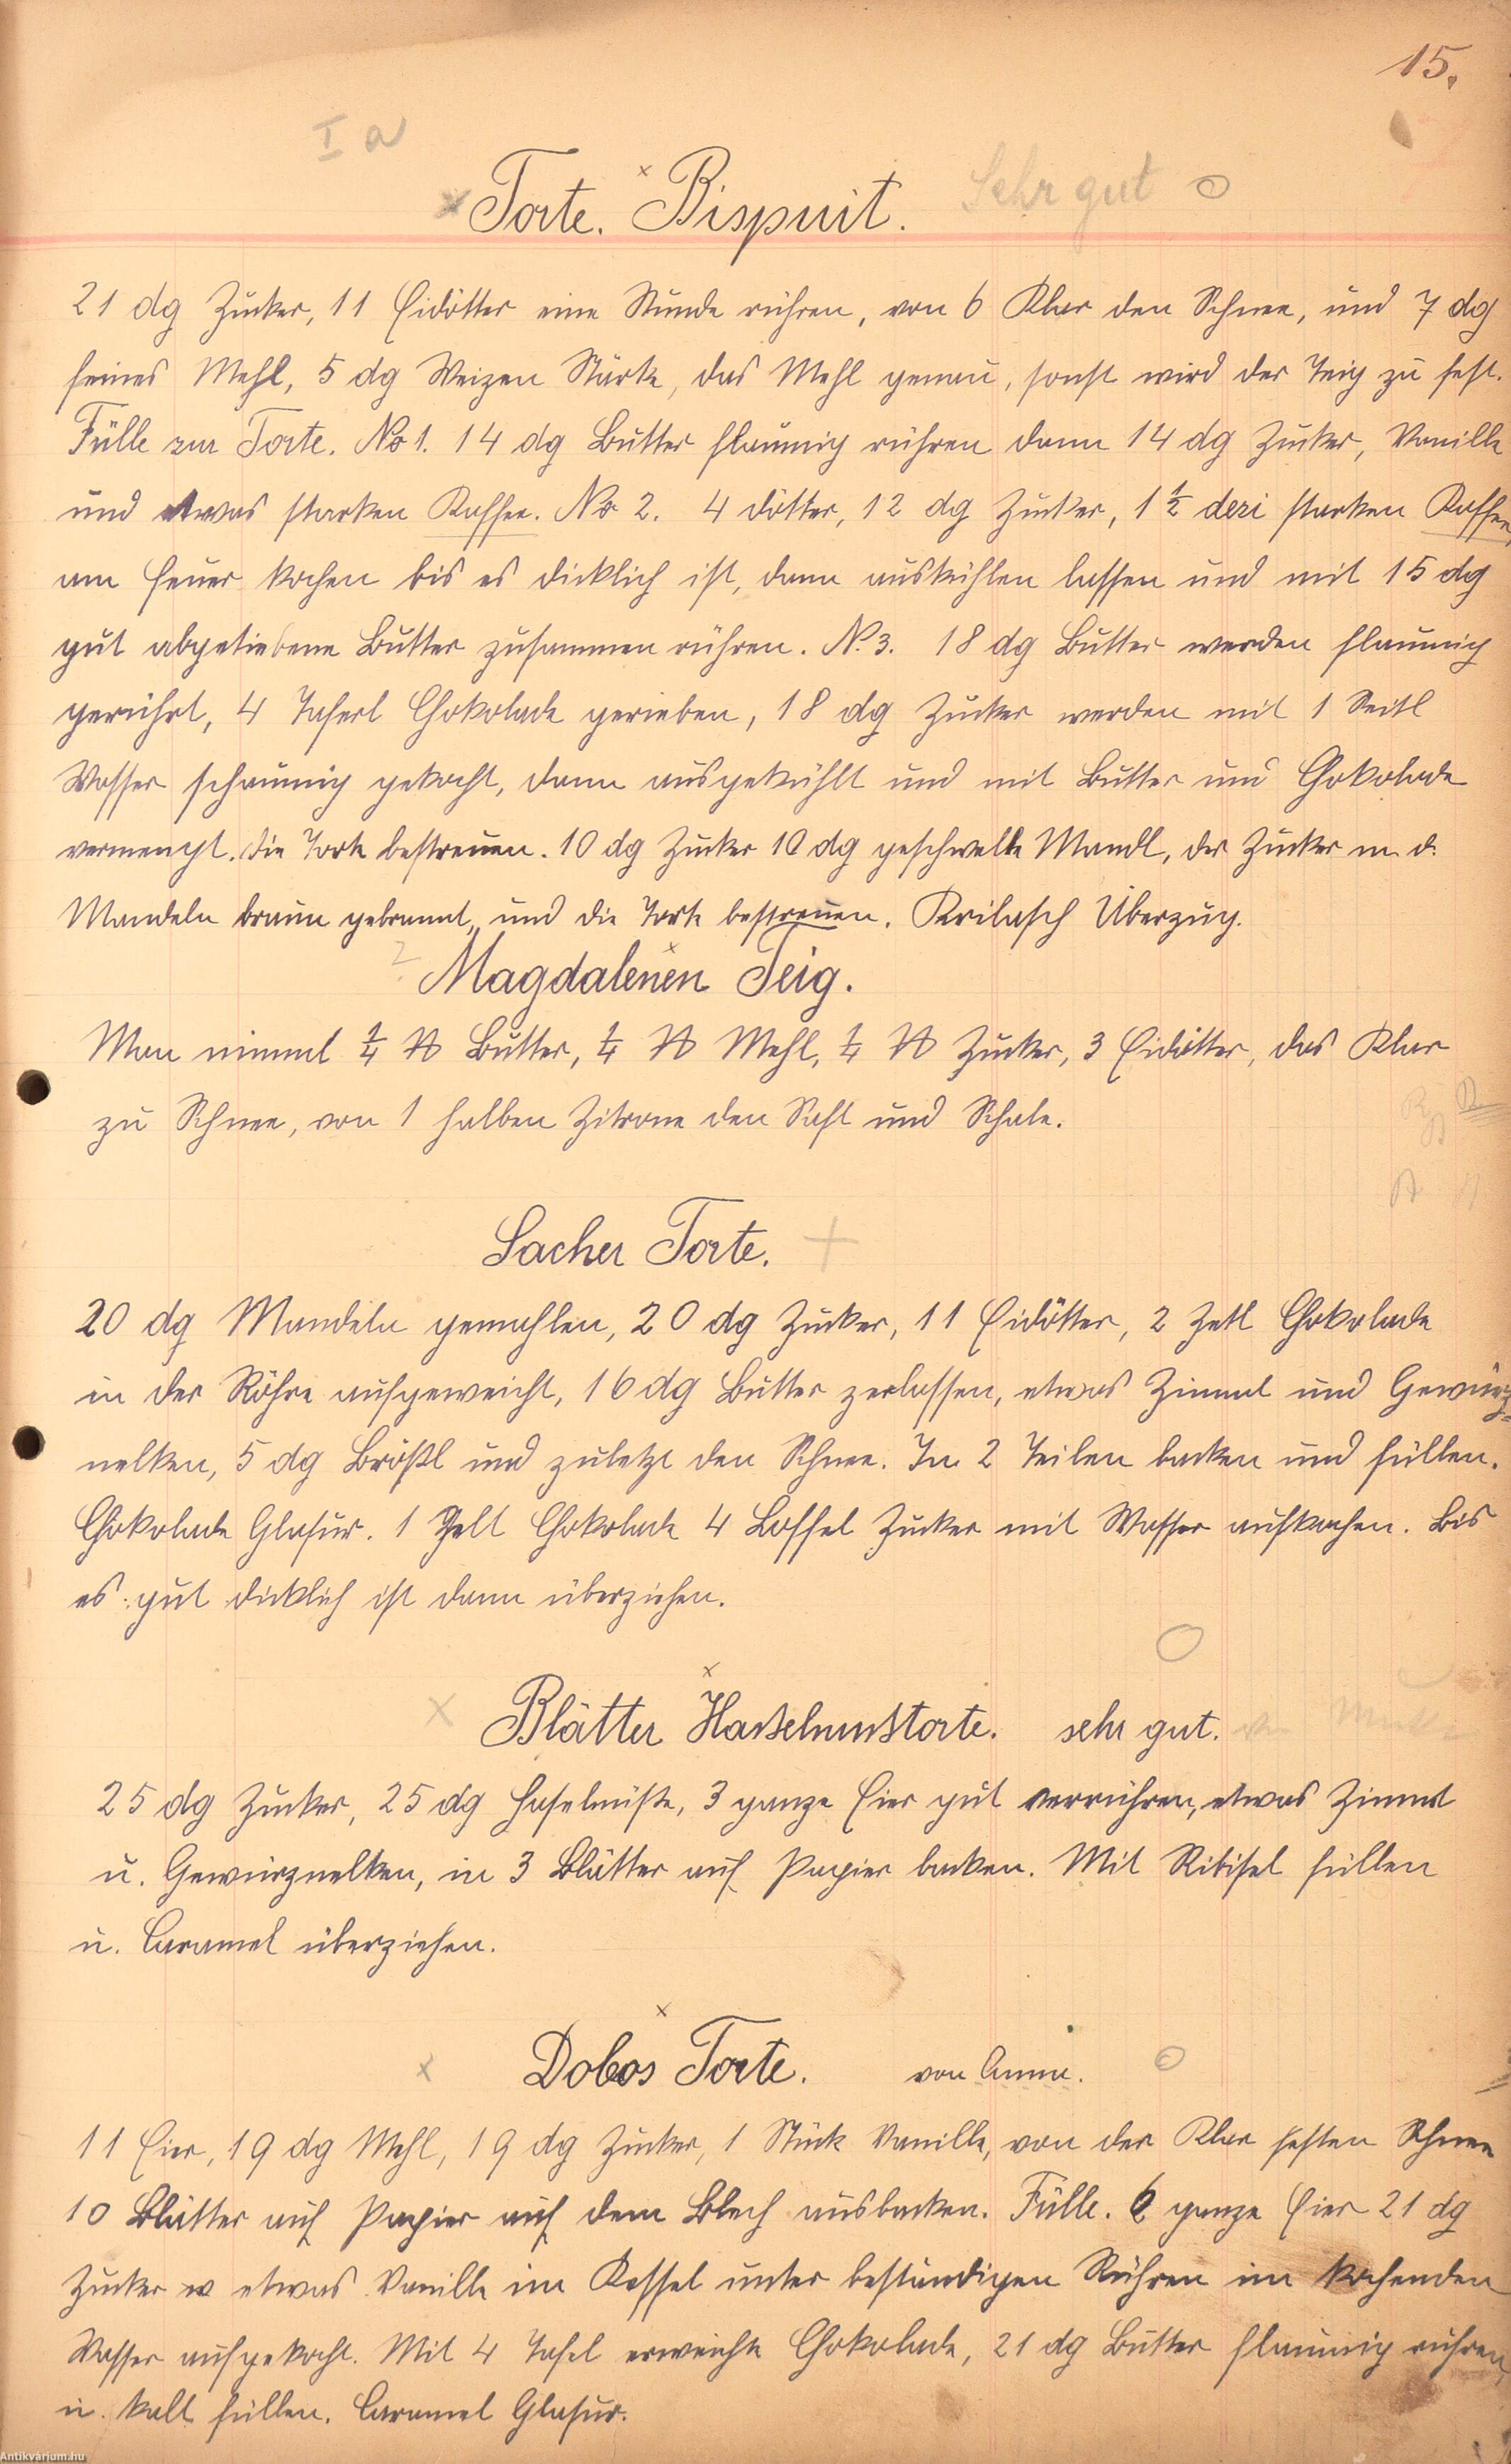 15.
I a
Torte. Bisquit. Sehr gut
21 dg Zucker, 11 Eidötter eine Stunde rühren, von 6 Klar den Schnee, und 7 dg
feines Mehl, 5 dg Weizen Stärke, das Mehl genau, sonst wird der Teig zu fest.
Fülle zur Torte. No 1. 14 dg Butter flaumig rühren dann 14 dg Zucker, Vanille
und etwas starken Kaffee. No 2. 4 Dötter, 12 dg Zucker, 1 1/2 dezi starken Kaffee,
am Feuer kochen bis es dicklich ist, dann auskühlen lassen und mit 15 dg
gut abgetiebene Butter zusammen rühren. N. 3. 18 dg Butter werden flaumig
gerührt, 4 Taferl Chokolade gerieben, 18 dg Zucker werden mit 1 Seitl
Wasser schaumig gekocht, dann ausgekühlt und mit Butter und Chokolade
vermengt. Die Torte bestreuen. 10 dg Zucker 10 dg geschwellte Mandl, der Zucker m. d.
Mandeln braun gebrannt, und die Torte bestreuen. Krilasch Überzug.
Magdalenen Teig.
Man nimmt 1/4 ℔ Butter, 1/4 ℔ Mehl, 1/4 ℔ Zucker, 3 Eidötter, das Klar
zu Schnee, von 1 halben Zitrone den Saft und Schale.
Sacher Torte.
20 dg Mandeln gemahlen, 20 dg Zucker, 11 Eidötter, 2 Zetl Chokolade
in der Röhre aufgeweicht, 16 dg Butter zerlassen, etwas Zimmt und Gewürz-
nelken, 5 dg Brößl und zuletzt den Schnee. In 2 Teilen backen und füllen.
Chokolade Glasur. 1 Zetl Chokolade 4 Löffel Zucker mit Wasser aufkochen. Bis
es gut dicklich ist dann überziehen.
Blätter Hasselnusstorte. sehr gut.
25 dg Zucker, 25 dg Haselnüße, 3 ganze Eier gut verrühren, etwas Zimmt
u. Gewürznelken, in 3 Blätter auf Papier backen. Mit Ribisel füllen
u. Caramel überziehen.
Dobos Torte. von Anna.
11 Eier, 19 dg Mehl, 19 dg Zucker, 1 Stück Vanille, von der Klar festen Schnee
10 Blätter auf Papier auf dem Blech ausbacken. Fülle. 6 ganze Eier 21 dg
Zucker etwas Vanille im Kessel unter beständigen Rühren im kochenden
Wasser aufgekocht. Mit 4 Tafel erweichte Chokolade, 21 dg Butter flaumig rühren,
u. kalt füllen. Caramel Glasur.
Antikvárium.hu